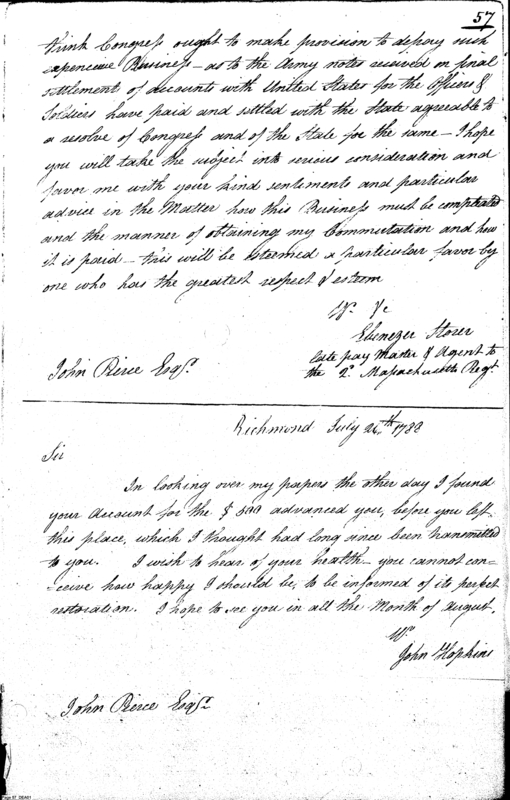 57
think Congress ought to make provision to defray such
expencive Business — as to the Army notes received on final
settlement of accounts with United States for the Officers &
Soldiers have paid and settled with the State agreable to
a resolve of Congress and of the State for the same — I hope
you will take the subject into serious consideration and
favor me with your kind sentiments and particular
advice in the Matter how this Business must be compleated
and the manner of obtaining my Commutation and how
it is paid — this will be esteemed a particular favor by
one who has the greatest respect & esteem
Yr. &c
Ebenezer Storer
late pay Master & Agent to
the 2d. Massachusetts Regt.
John Pierce Esqr.
Richmond July 26th 1788
Sir
In looking over my papers the other day I found
your account for the $ 500 advanced you, before you left
this place, which I thought had long since been transmitted
to you. I wish to hear of your health — you cannot con=
=ceive how happy I should be, to be informed of its perfect
restoration. I hope to see you in all the Month of August.
Yr.
John Hopkins
John Pierce Esqr